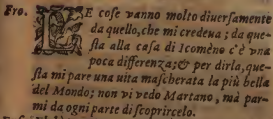 Fro. LE cose vanno molto diuersamente
da quello, che mi credeua; da que-
sta alla casa di Icomêno c'è vna
poca differenza; & per dirla, que-
sta mi pare vna mascherata la più bella
del Mondo; non vi vedo Martano, mà par-
mi da ogni parte di scoprircelo.